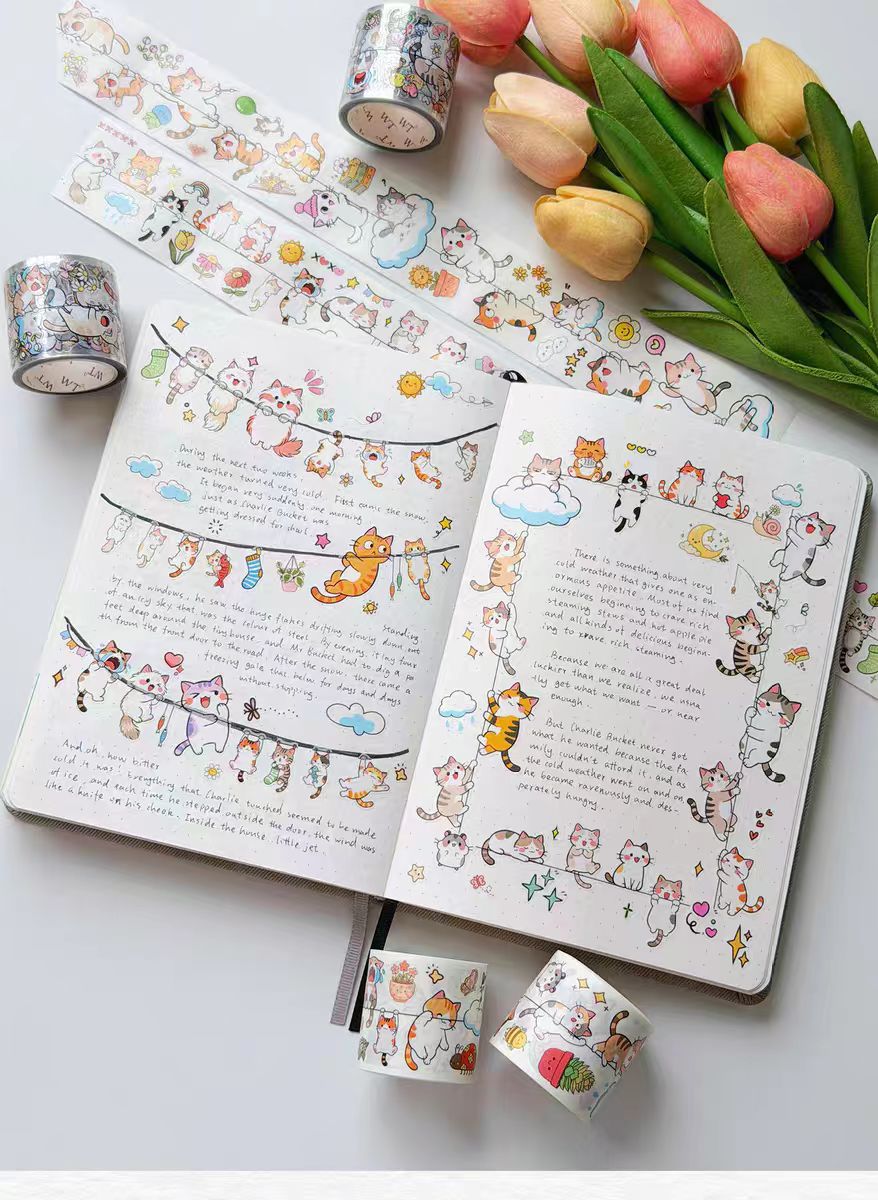 During the next two weeks,
the weather turned very cold. First came the snow.
It began very suddenly one morning
just as Charlie Bucket was
getting dressed for
standing
by the windows, he saw the tiny flakes drifting slowly down out
of an icy sky that was the colour of steel. By evening, it lay four
feet deep around the tiny house, and Mr Bucket had to dig a pa
th from the front door to the road. After the snow, there came a
freezing gale that for days and days
without stopping.
And oh, how bitter
cold it was! Everything that Charlie touched seemed to be made
of ice, and each time he stepped outside the door, the wind was
like a knife on his cheek. Inside the house, little jet
There is something about very
cold weather that gives one an en-
ormous appetite. Most of us find
ourselves beginning to crave rich
steaming stews and hot apple pie
and all kinds of delicious beginn-
ing to crave rich steaming.
Because we are all a great deal
luckier than we realize, we usua
lly get what we want — or near
enough.
But Charlie Bucket never got
what he wanted because the fa
mily couldn't afford it, and as
the cold weather went on and on,
he became ravenously and des-
perately hungry.
WT WT
WT WT